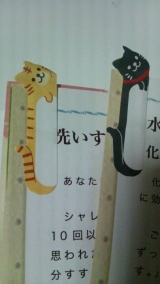 先いす
あなた
シャレ
10回以
思われた
分すす
水
化
に効